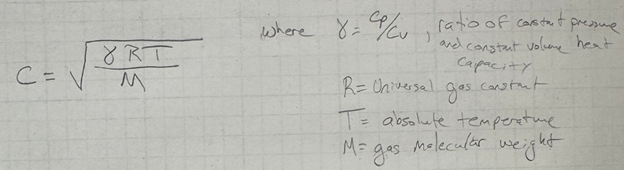 C = √(γRT/M)
where γ = Cp/Cv, ratio of constant pressure
and constant volume heat
capacity
R= Universal gas constant
T= absolute temperature
M= gas molecular weight